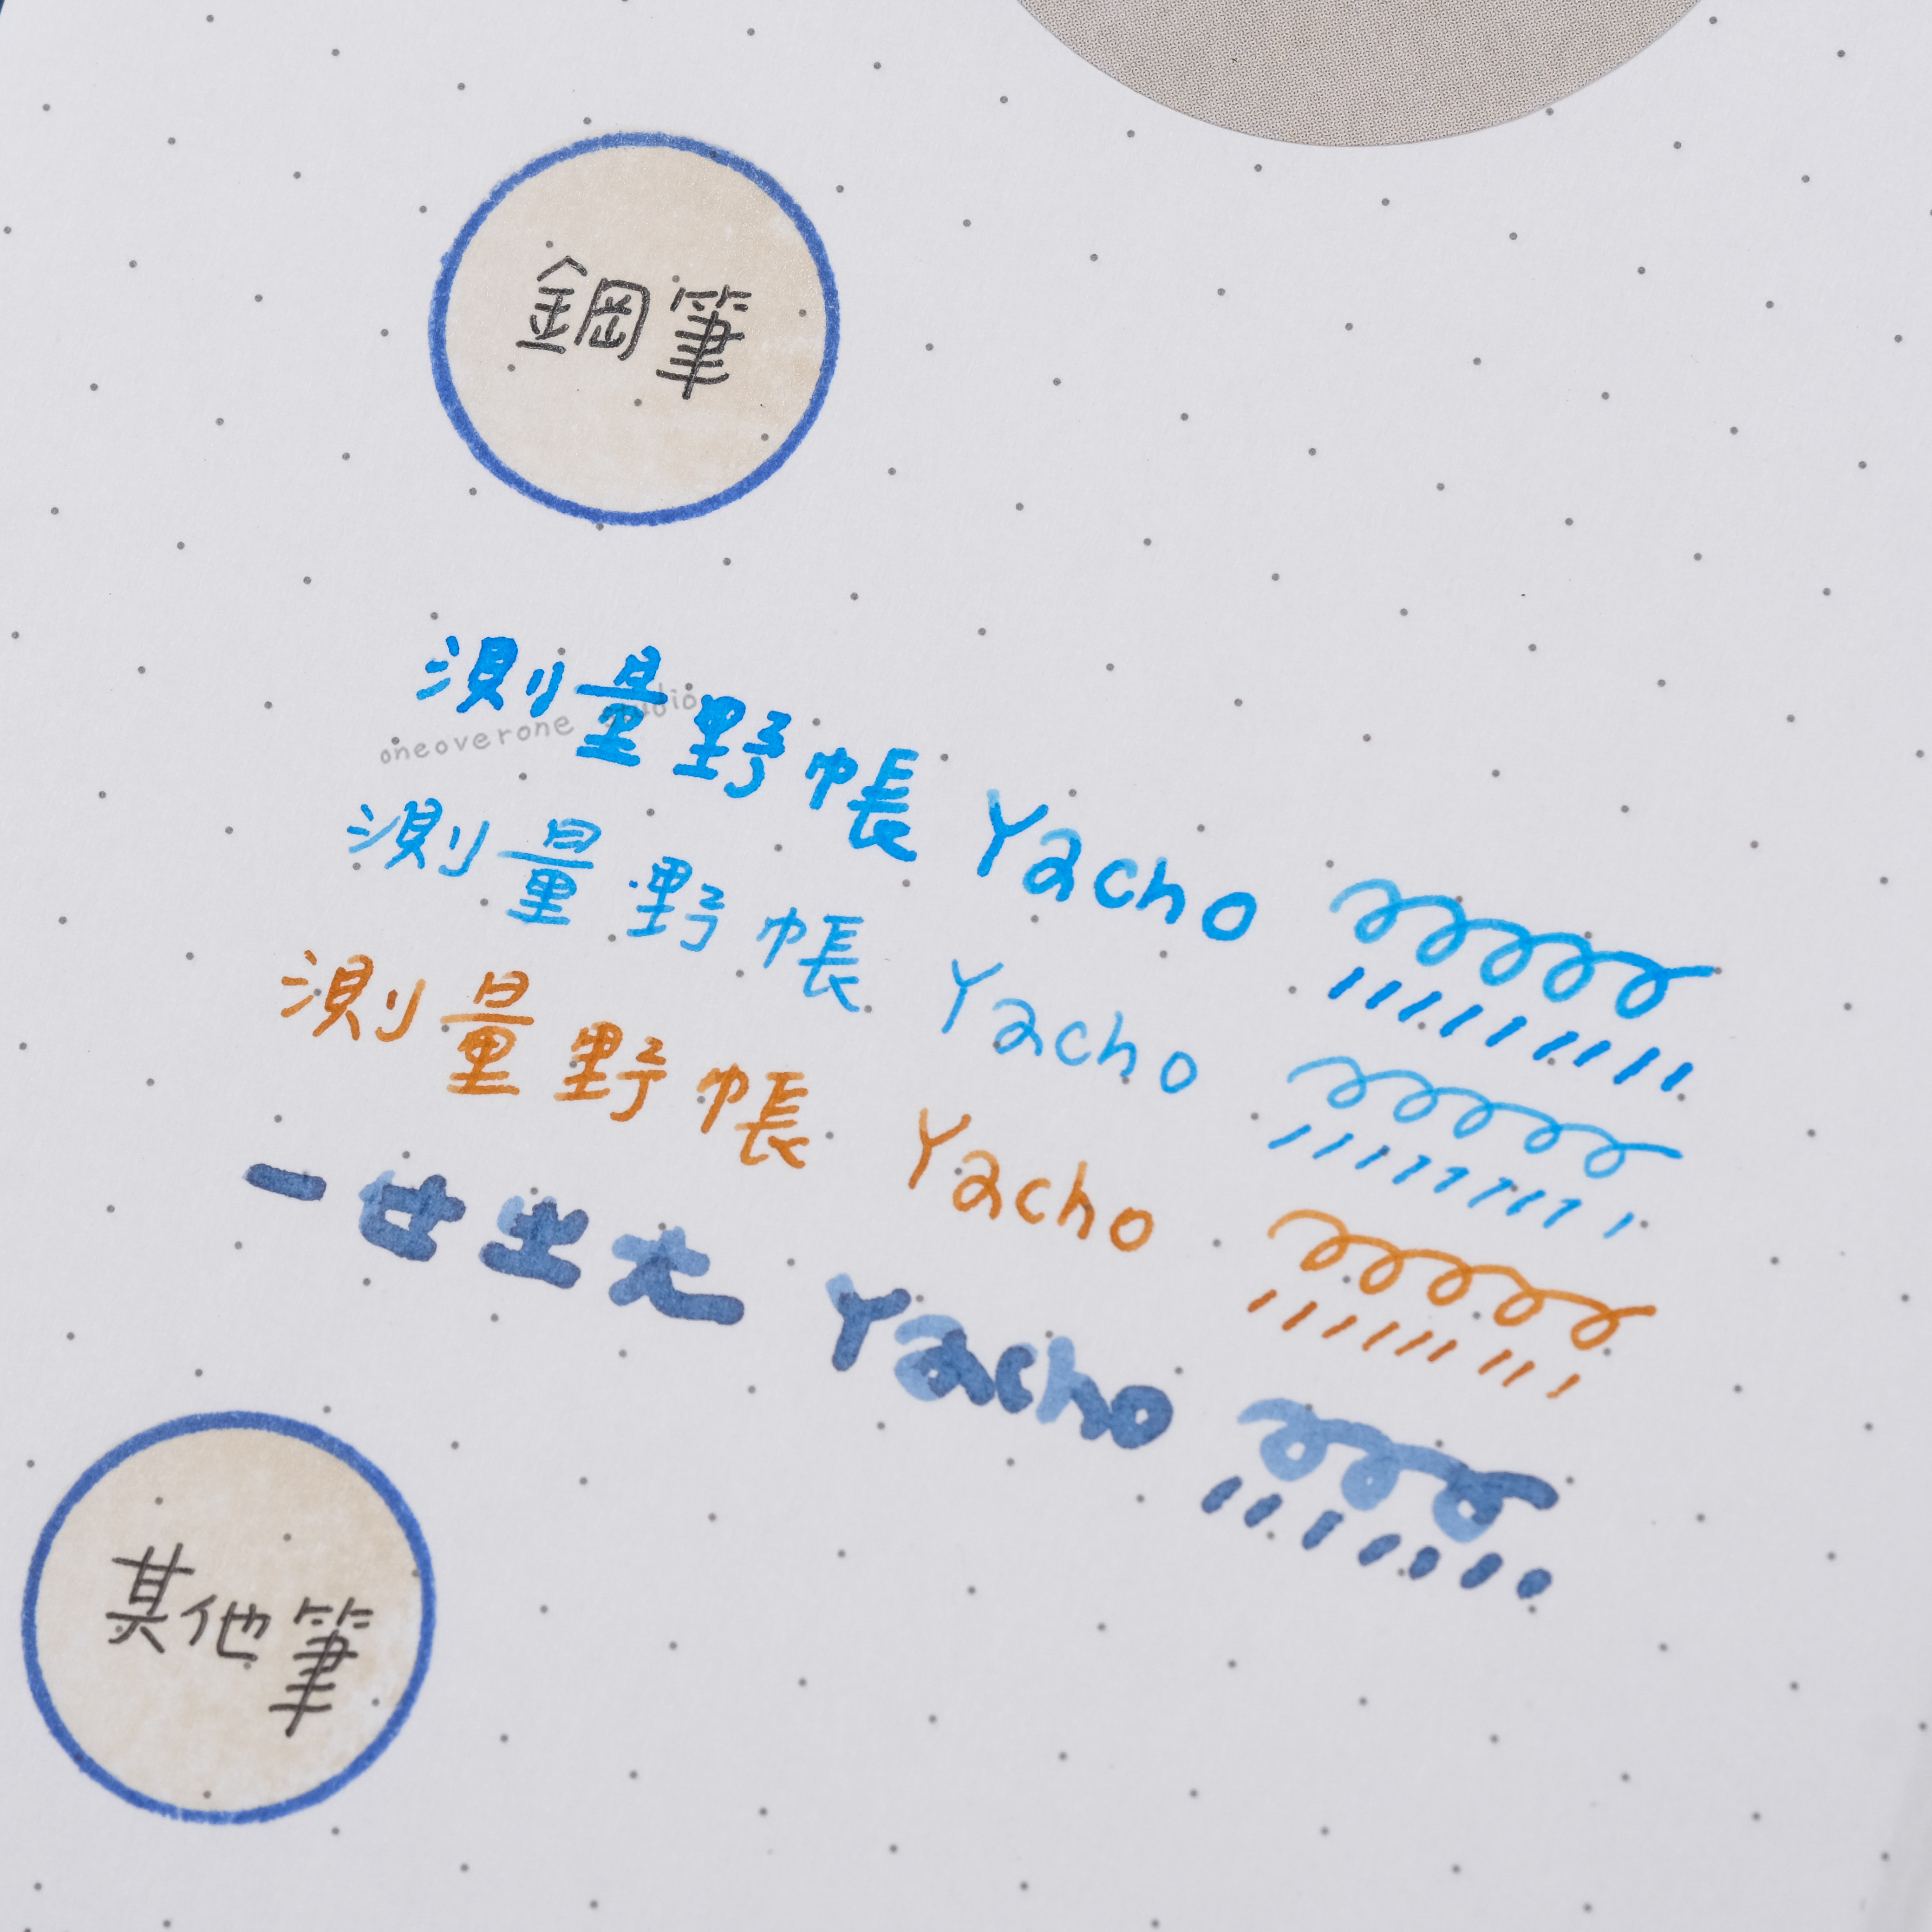 鋼筆
測量野帳 Yacho
oneoverone studio
測量野帳 Yacho
測量野帳 Yacho
一廿出大 Yacho
其他筆